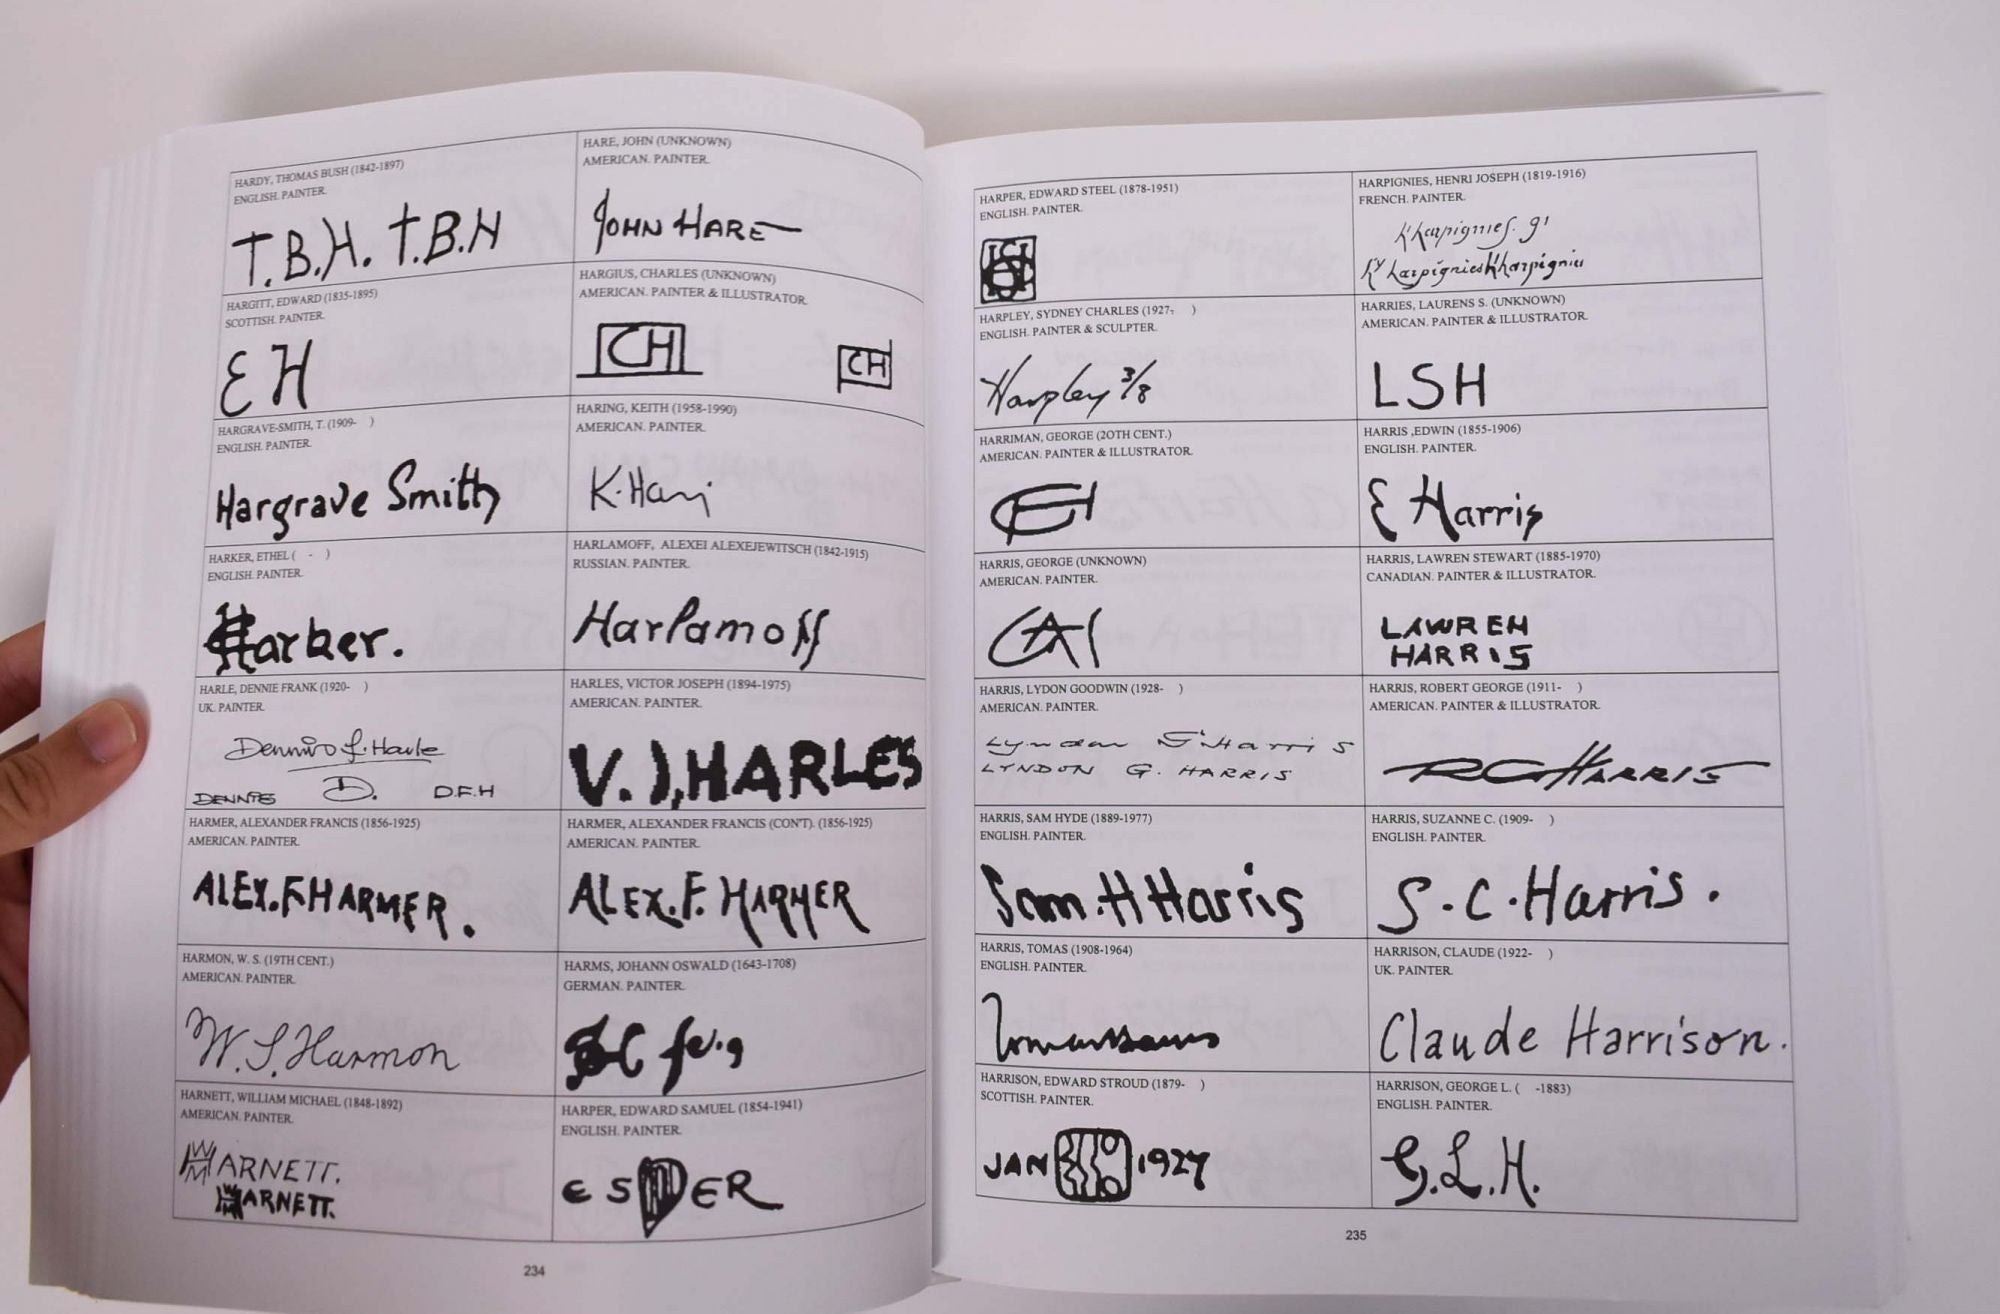 HARDY, THOMAS BUSH (1842-1897)
ENGLISH. PAINTER.
T.B.H. T.B.H
HARE, JOHN (UNKNOWN)
AMERICAN. PAINTER.
JOHN HARE
HARGITT, EDWARD (1835-1895)
SCOTTISH. PAINTER.
EH
HARGIUS, CHARLES (UNKNOWN)
AMERICAN. PAINTER & ILLUSTRATOR.
CH
CH
HARGRAVE-SMITH, T. (1909- )
ENGLISH. PAINTER.
Hargrave Smith
HARING, KEITH (1958-1990)
AMERICAN. PAINTER.
K. Hari
HARKER, ETHEL ( - )
ENGLISH. PAINTER.
Harker.
HARLAMOFF, ALEXEI ALEXEJEWITSCH (1842-1915)
RUSSIAN. PAINTER.
Harlamoff
HARLE, DENNIE FRANK (1920- )
UK. PAINTER.
Dennis f. Harle
DENNIS D. D.F.H
HARLES, VICTOR JOSEPH (1894-1975)
AMERICAN. PAINTER.
V. J, HARLES
HARMER, ALEXANDER FRANCIS (1856-1925)
AMERICAN. PAINTER.
ALEX.F.HARMER.
HARMER, ALEXANDER FRANCIS (CON'T). (1856-1925)
AMERICAN. PAINTER.
ALEX. F. HARMER
HARMON, W. S. (19TH CENT.)
AMERICAN. PAINTER.
W. S. Harmon
HARMS, JOHANN OSWALD (1643-1708)
GERMAN. PAINTER.
HARNETT, WILLIAM MICHAEL (1848-1892)
AMERICAN. PAINTER.
HARNETT.
HARNETT.
HARPER, EDWARD SAMUEL (1854-1941)
ENGLISH. PAINTER.
234
HARPER, EDWARD STEEL (1878-1951)
ENGLISH. PAINTER.
HARPIGNIES, HENRI JOSEPH (1819-1916)
FRENCH. PAINTER.
H harpignies. 91
Hy harpignies H harpignies
HARPLEY, SYDNEY CHARLES (1927- )
ENGLISH. PAINTER & SCULPTER.
Harpley 3/8
HARRIES, LAURENS S. (UNKNOWN)
AMERICAN. PAINTER & ILLUSTRATOR.
LSH
HARRIMAN, GEORGE (20TH CENT.)
AMERICAN. PAINTER & ILLUSTRATOR.
HARRIS ,EDWIN (1855-1906)
ENGLISH. PAINTER.
E Harris
HARRIS, GEORGE (UNKNOWN)
AMERICAN. PAINTER.
HARRIS, LAWREN STEWART (1885-1970)
CANADIAN. PAINTER & ILLUSTRATOR.
LAWREN
HARRIS
HARRIS, LYDON GOODWIN (1928- )
AMERICAN. PAINTER.
Lyndon G Harris
LYNDON G. HARRIS
HARRIS, ROBERT GEORGE (1911- )
AMERICAN. PAINTER & ILLUSTRATOR.
RG HARRIS
HARRIS, SAM HYDE (1889-1977)
ENGLISH. PAINTER.
Sam. H Harris
HARRIS, SUZANNE C. (1909- )
ENGLISH. PAINTER.
S. C. Harris.
HARRIS, TOMAS (1908-1964)
ENGLISH. PAINTER.
HARRISON, CLAUDE (1922- )
UK. PAINTER.
Claude Harrison.
HARRISON, EDWARD STROUD (1879- )
SCOTTISH. PAINTER.
JAN 1927
HARRISON, GEORGE L. ( -1883)
ENGLISH. PAINTER.
G.L.H.
235